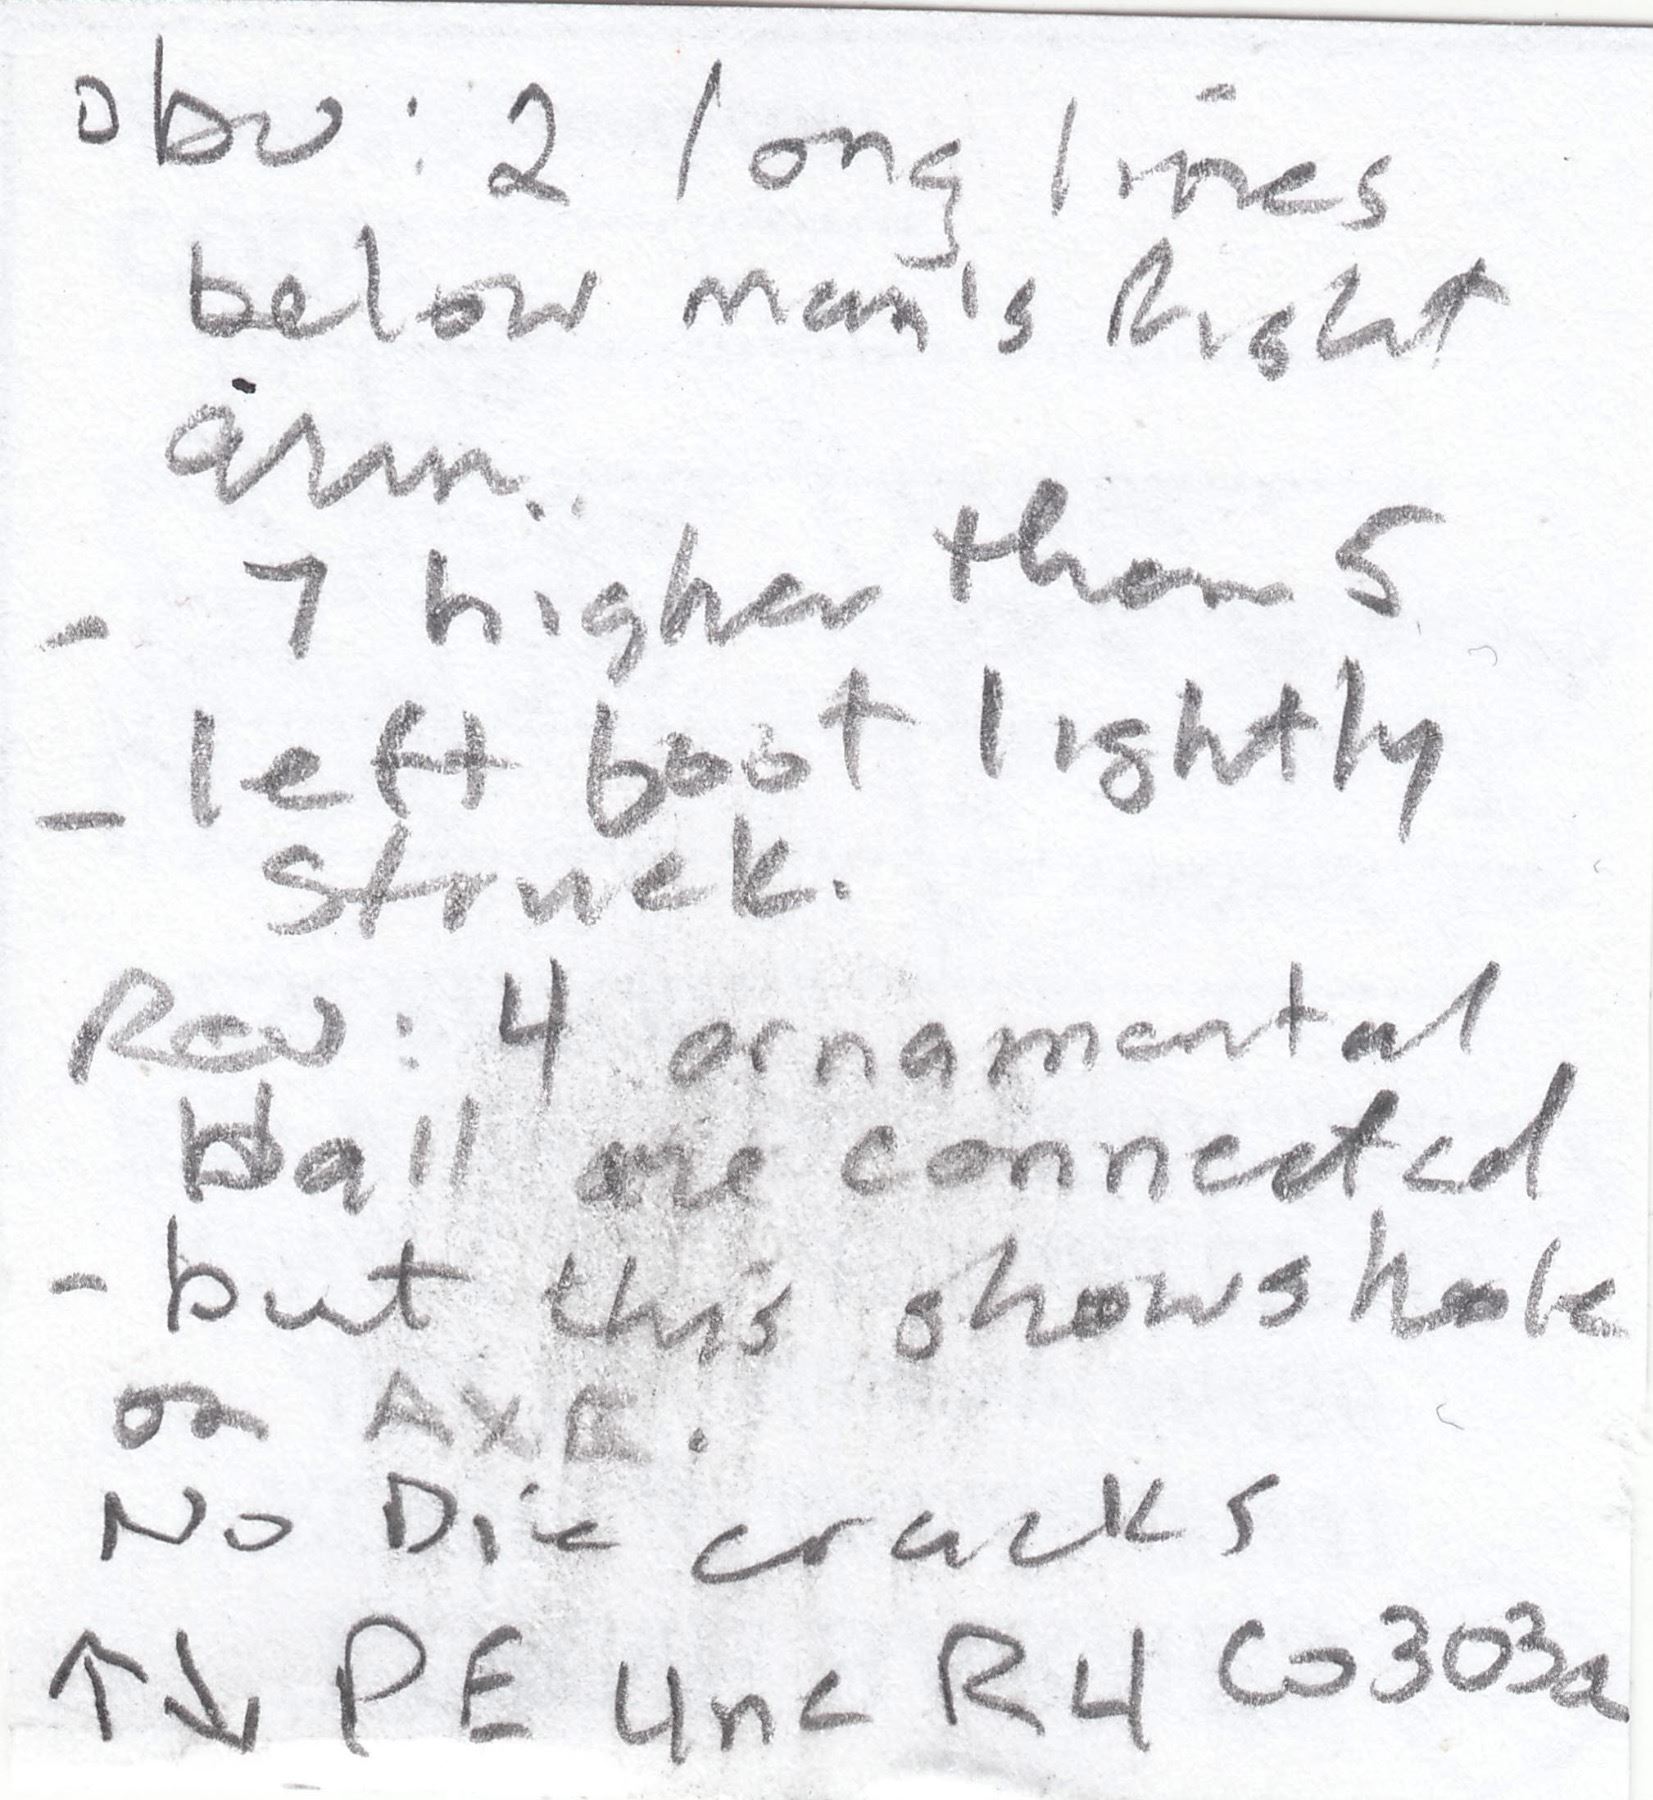 Obv: 2 long lines
below man's Right
arm.
- 7 higher than 5
- left boot lightly
struck.
Rev: 4 ornamental
ball are connected
- but this shows hole
on AXE.
No Die cracks
↑↓ PE Unc R4 Co303a